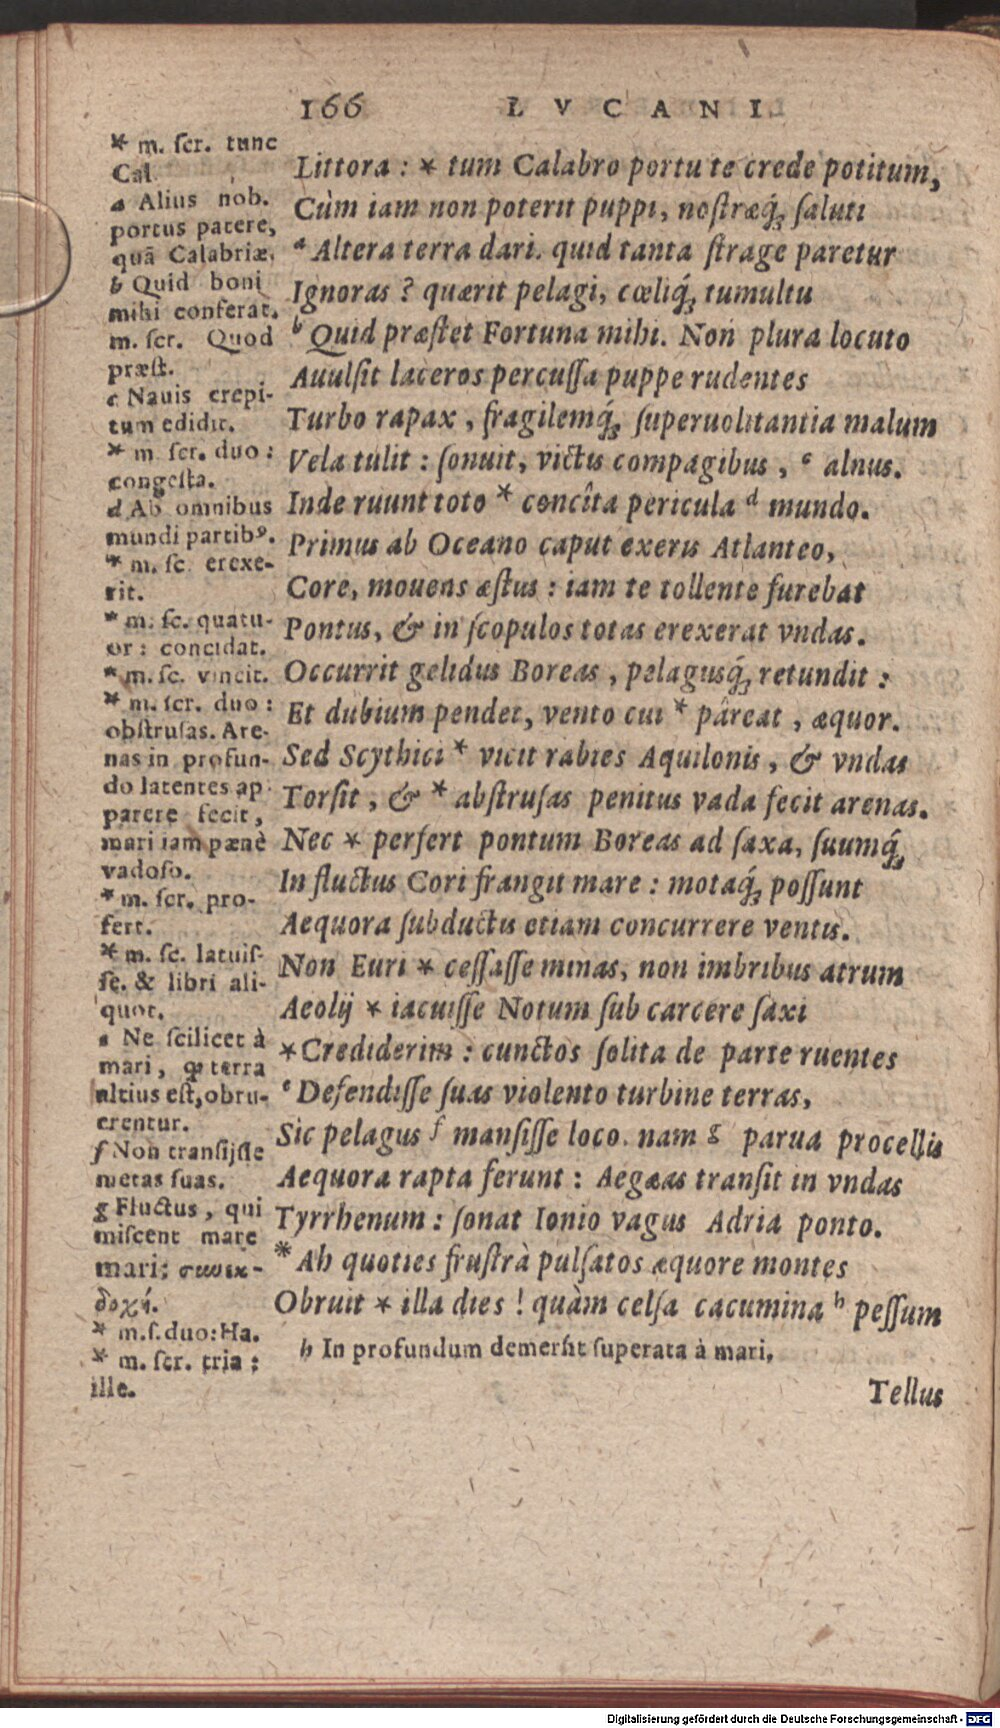 166 LVCANI
* m. ſcr. tunc
Cal.
a Alius nob.
portus patere,
quā Calabriæ.
b Quid boni
mihi conferat.
m. ſcr. Quod
præſt.
c Nauis crepi-
tum edidit.
* m. ſcr. duo:
congeſta.
d Ab omnibus
mundi partibꝰ.
* m. ſc. erexe-
rit.
* m. ſc. quatu-
or: concidat.
* m. ſc. vincit.
* m. ſcr. duo:
obſtruſas. Are-
nas in profun-
do latentes ap
parere fecit,
mari iam pænè
vadoſo.
* m. ſcr. pro-
fert.
* m. ſc. latuiſ-
ſe. & libri ali-
quot.
e Ne ſcilicet à
mari, qꝫ terra
altius eſt, obru-
erentur.
f Non tranſijſſe
metas ſuas.
g Fluctus, qui
miſcent mare
mari; συνεκ-
δοχή.
* m. ſ. duo: Ha.
* m. ſcr. tria:
ille.
Littora: * tum Calabro portu te crede potitum,
Cùm iam non poterit puppi, noſtræq́ꝫ ſaluti
a Altera terra dari. quid tanta ſtrage paretur
Ignoras? quærit pelagi, cœliq́ꝫ tumultu
b Quid præſtet Fortuna mihi. Non plura locuto
Auulſit laceros percuſſa puppe rudentes
Turbo rapax, fragilemq́ꝫ ſuperuolitantia malum
Vela tulit: ſonuit, victis compagibus, c alnus.
Inde ruunt toto * concîta pericula d mundo.
Primus ab Oceano caput exeris Atlanteo,
Core, mouens æſtus: iam te tollente furebat
Pontus, & in ſcopulos totas erexerat vndas.
Occurrit gelidus Boreas, pelagusq́ꝫ retundit:
Et dubium pendet, vento cui * pâreat, æquor.
Sed Scythici * vicit rabies Aquilonis, & vndas
Torſit, & * abſtruſas penitus vada fecit arenas.
Nec * perfert pontum Boreas ad ſaxa, ſuumq́ꝫ
In fluctus Cori frangit mare: motaq́ꝫ poſſunt
Aequora ſubductis etiam concurrere ventis.
Non Euri * ceſſaſſe minas, non imbribus atrum
Aeolij * iacuiſſe Notum ſub carcere ſaxi
* Crediderim: cunctos ſolita de parte ruentes
e Defendiſſe ſuas violento turbine terras,
Sic pelagus f manſiſſe loco. nam g parua procellis
Aequora rapta ferunt: Aegæas tranſit in vndas
Tyrrhenum: ſonat Ionio vagus Adria ponto.
* Ah quoties fruſtrà pulſatos æquore montes
Obruit * illa dies! quàm celſa cacumina h peſſum
h In profundum demerſit ſuperata à mari,
Tellus
Digitalisierung gefördert durch die Deutsche Forschungsgemeinschaft - DFG